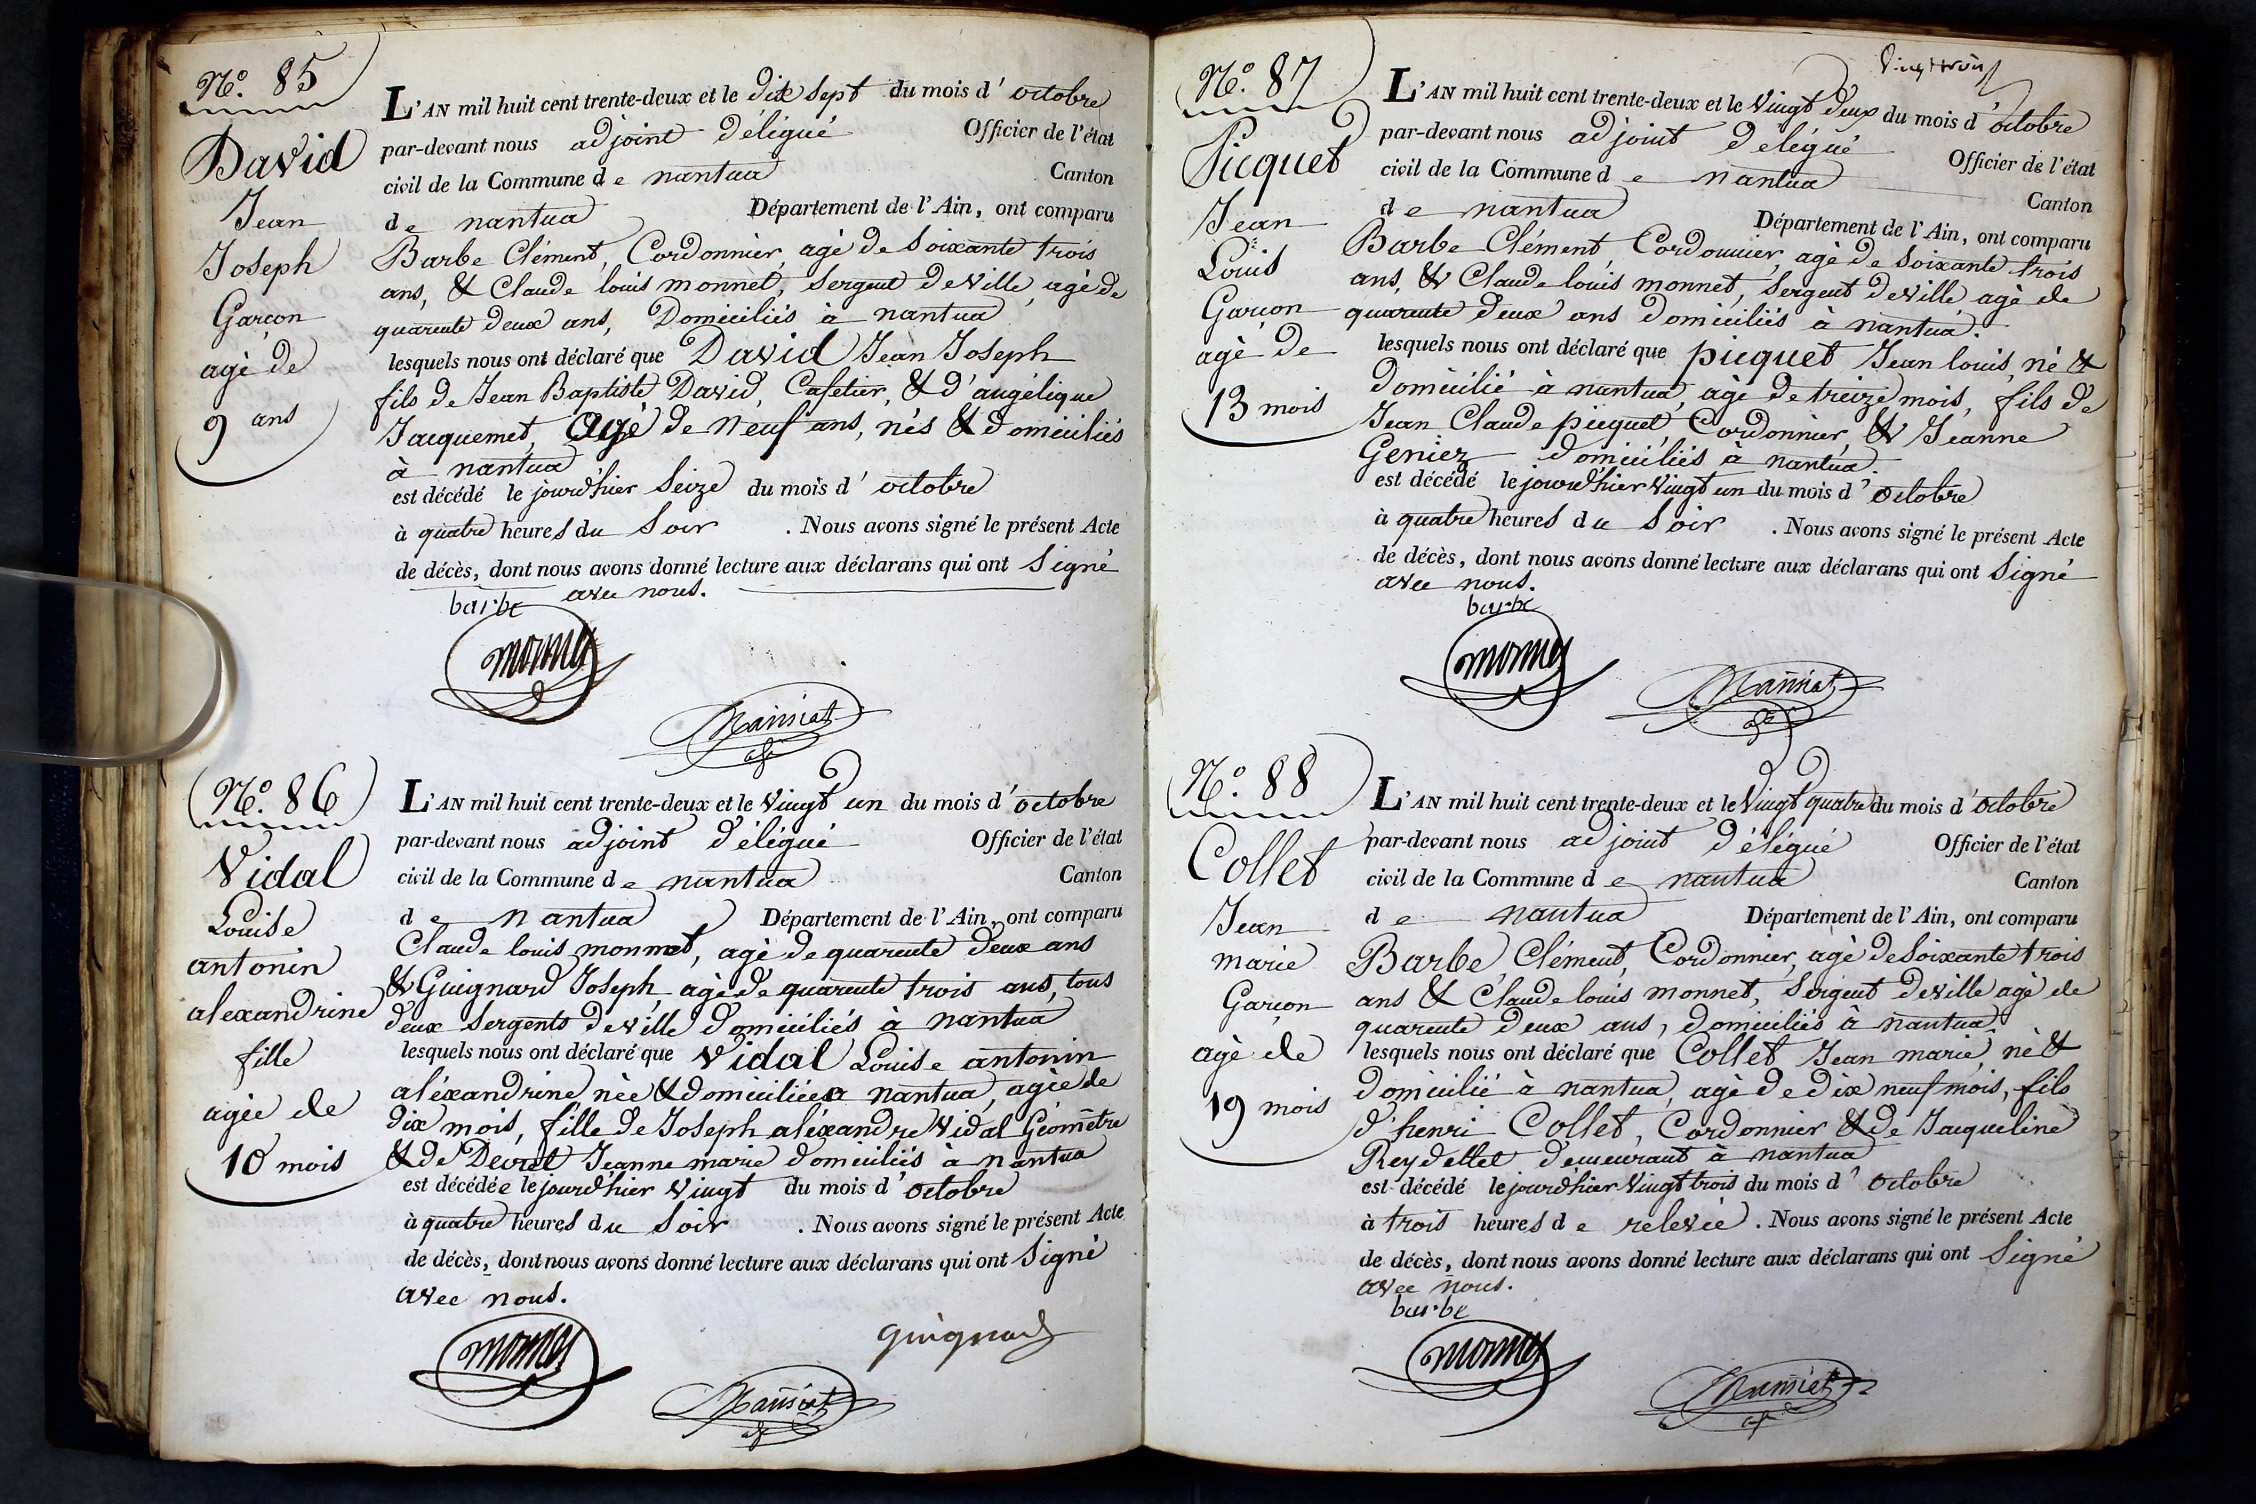 Nº. 85
David
Jean
Joseph
Garçon
agé de
9 ans
L'AN mil huit cent trente-deux et le dix sept du mois d' octobre
par-devant nous adjoint délégué Officier de l'état
civil de la Commune de nantua Canton
de nantua Département de l'Ain, ont comparu
Barbe Clément, Cordonnier, agé de Soixante trois
ans, & Claude louis monnet, Sergent de Ville, agé de
quarente deux ans, Domiciliés à nantua
lesquels nous ont déclaré que David Jean Joseph
fils de Jean Baptiste David, Cafetier, & d'angélique
Jacquemet, agé de neuf ans, nés & domiciliés
à nantua
est décédé le jourd'hier Seize du mois d' octobre
à quatre heures du Soir . Nous avons signé le présent Acte
de décès, dont nous avons donné lecture aux déclarans qui ont Signé
avec nous.
barbe
monnet
Mansiat
adj
Nº. 86
Vidal
Louise
antonin
alexandrine
fille
agée de
10 mois
L'AN mil huit cent trente-deux et le Vingt un du mois d' octobre
par-devant nous adjoint délégué Officier de l'état
civil de la Commune de nantua Canton
de nantua Département de l'Ain, ont comparu
Claude louis monnet, agé de quarente deux ans
& Guignard Joseph agé de quarente trois ans, tous
deux Sergents de ville domiciliés à nantua
lesquels nous ont déclaré que Vidal Louise antonin
aléxandrine née & domiciliée a nantua, agée de
dix mois, fille de Joseph aléxandre Vidal Géomètre
& de Devret Jeanne marie domiciliés à nantua
est décédée le jourd'hier Vingt du mois d' octobre
à quatre heures du Soir . Nous avons signé le présent Acte
de décès, dont nous avons donné lecture aux déclarans qui ont Signé
avec nous.
monnet
guignard
Mansiat
adj
Nº. 87
Picquet
Jean
Louis
Garçon
agé de
13 mois
Vingt trois
L'AN mil huit cent trente-deux et le Vingt deux du mois d' octobre
par-devant nous adjoint délégué Officier de l'état
civil de la Commune de nantua Canton
de nantua Département de l'Ain, ont comparu
Barbe Clément, Cordonnier, agé de Soixante trois
ans, & Claude louis monnet, Sergent de ville agé de
quarente deux ans domiciliés à nantua.
lesquels nous ont déclaré que picquet Jean louis, né &
domicilié à nantua, agé de treize mois, fils de
Jean Claude picquet Cordonnier, & Jeanne
Geniez domiciliés à nantua.
est décédé le jourd'hier Vingt un du mois d' octobre
à quatre heures du Soir . Nous avons signé le présent Acte
de décès, dont nous avons donné lecture aux déclarans qui ont Signé
avec nous.
barbe
monnet
Mansiat
adj
Nº. 88
Collet
Jean
marie
Garçon
agé de
19 mois
L'AN mil huit cent trente-deux et le Vingt quatre du mois d' octobre
par-devant nous adjoint délégué Officier de l'état
civil de la Commune de nantua Canton
de nantua Département de l'Ain, ont comparu
Barbe Clément, Cordonnier, agé de Soixante trois
ans & Claude louis monnet, Sergent de ville agé de
quarente deux ans, domiciliés à nantua.
lesquels nous ont déclaré que Collet Jean marie, né &
domicilié à nantua, agé de dix neuf mois, fils
d'henri Collet, Cordonnier & de Jacqueline
Reydellet demeurant à nantua
est décédé le jourd'hier Vingt trois du mois d' octobre
à trois heures de relevée . Nous avons signé le présent Acte
de décès, dont nous avons donné lecture aux déclarans qui ont Signé
avec nous.
barbe
monnet
Mansiat
adj